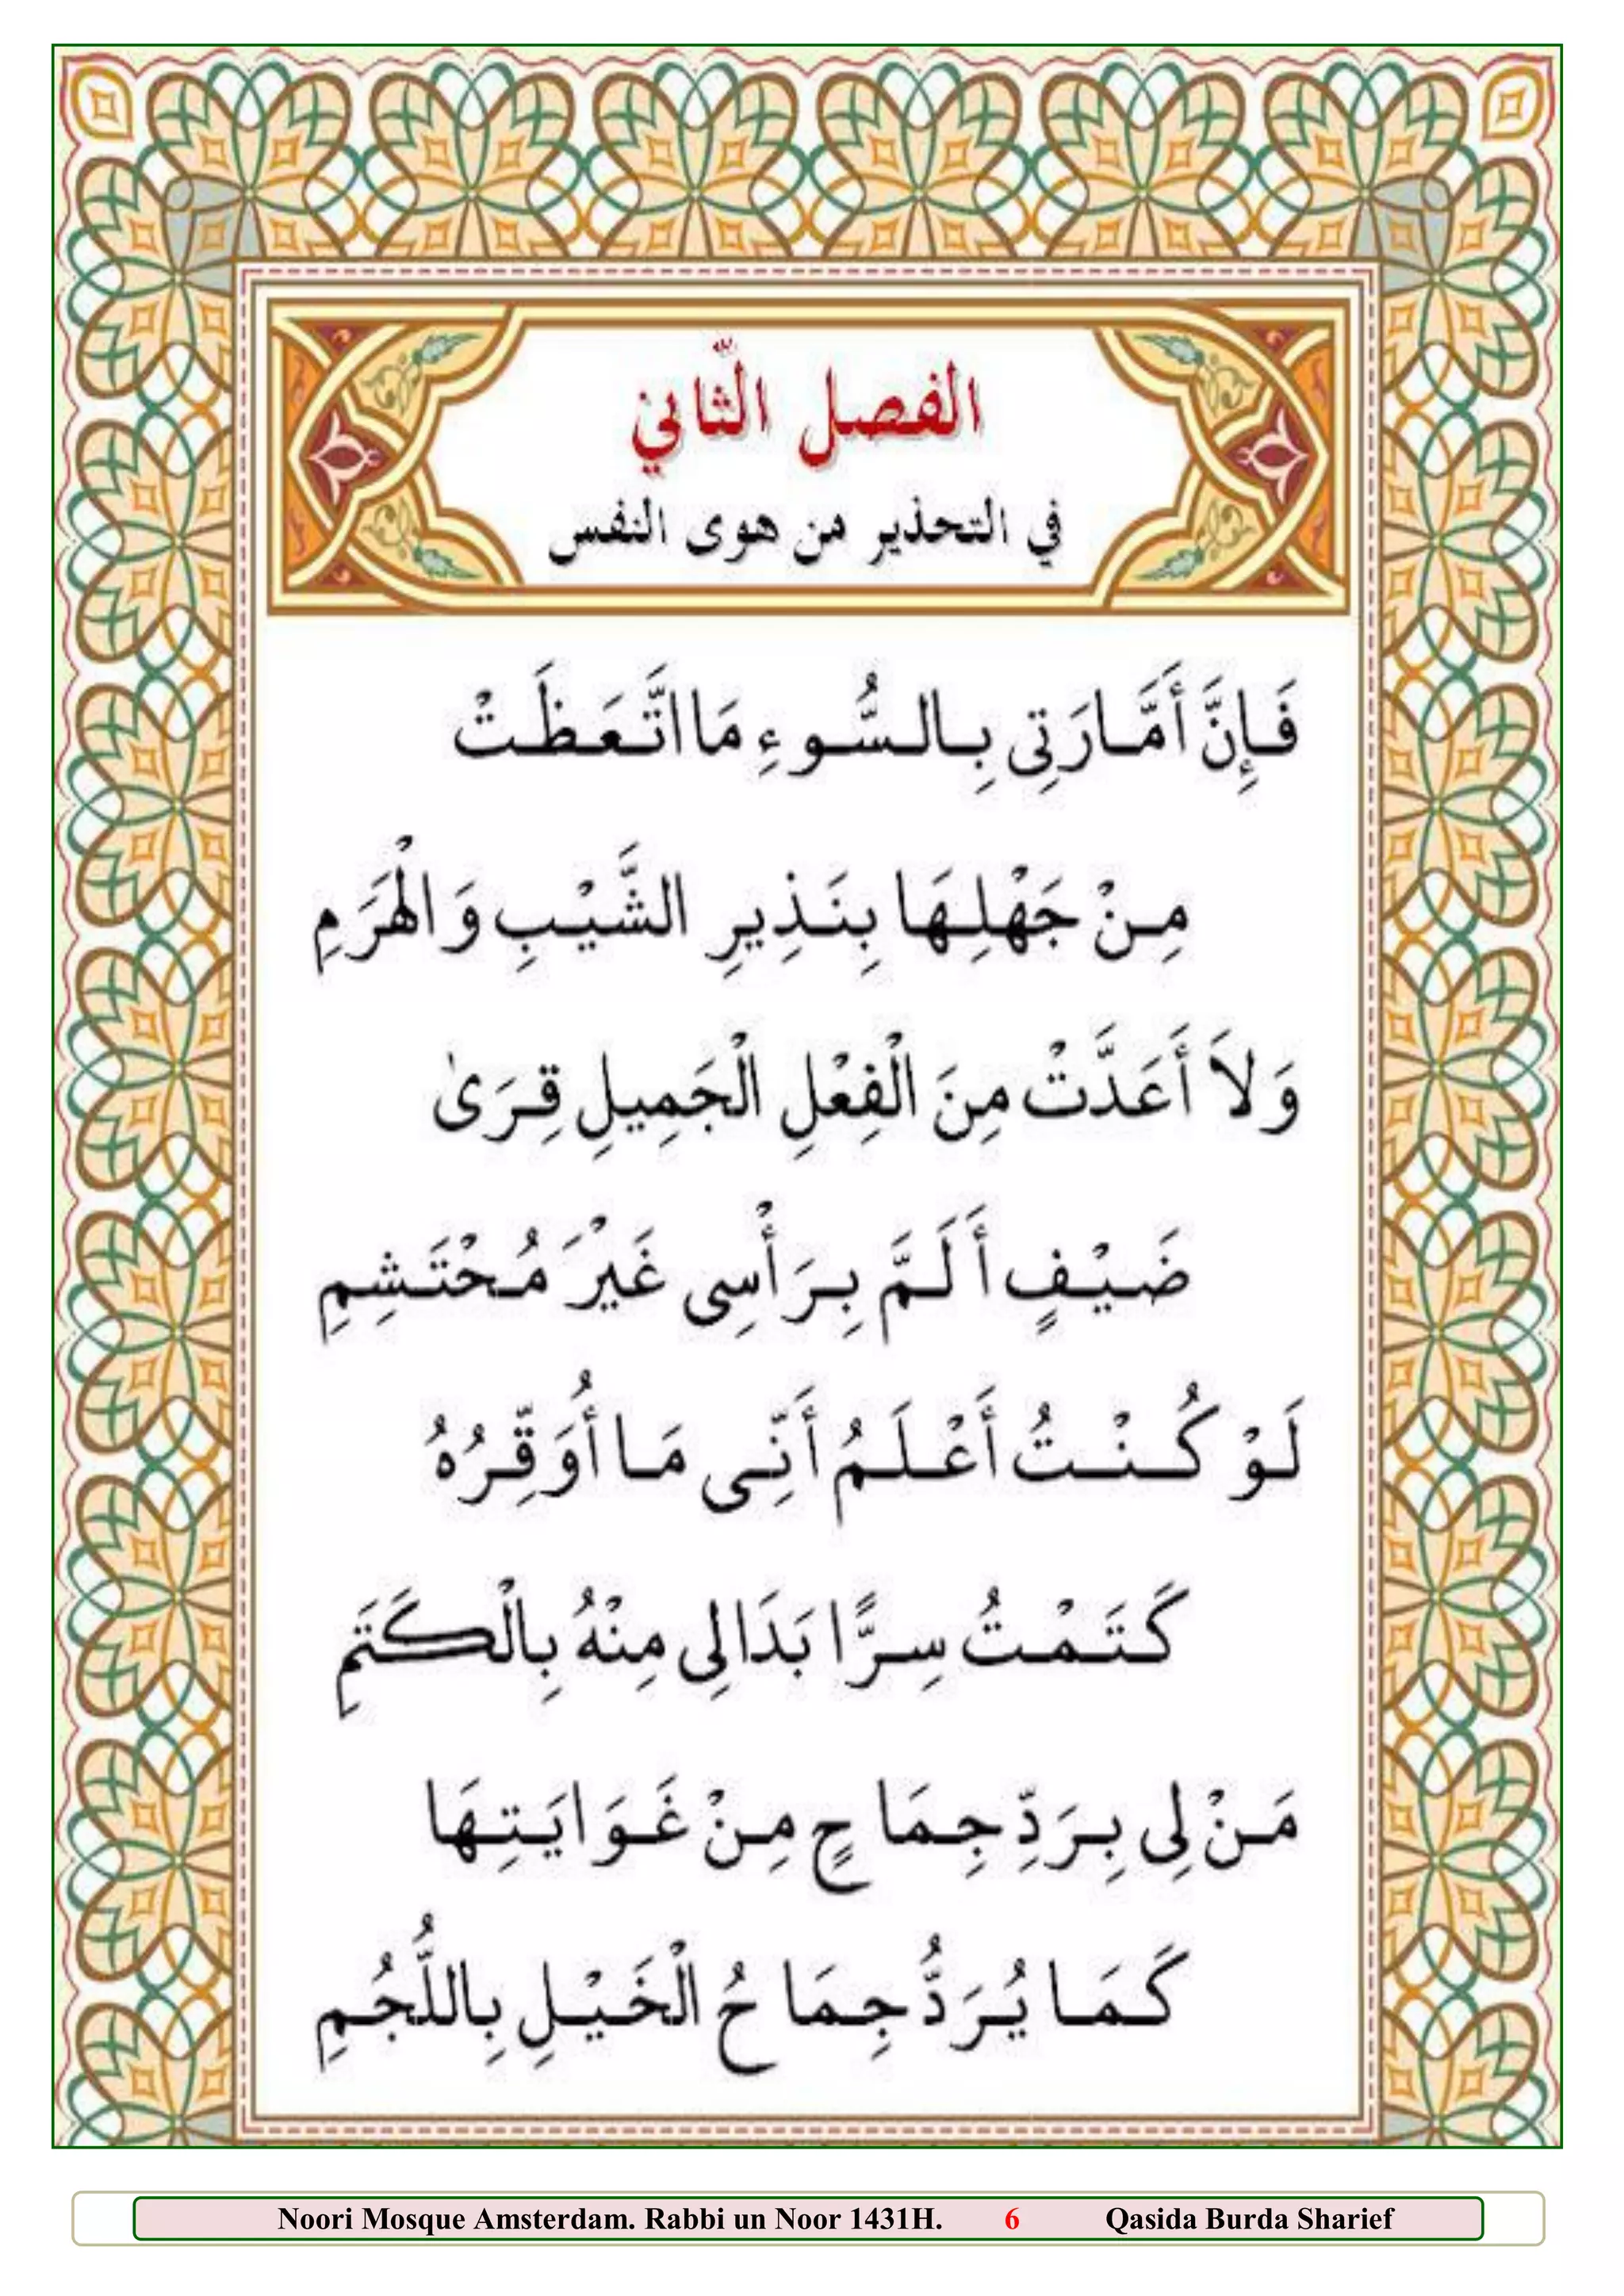 الفصل الثّاني
في التحذير من هوى النفس
فَإِنَّ أَمَّارَتِى بِالسُّوءِ مَا اتَّعَظَتْ
مِنْ جَهْلِهَا بِنَذِيرِ الشَّيْبِ وَالْهَرَمِ
وَلاَ أَعَدَّتْ مِنَ الْفِعْلِ الْجَمِيلِ قِرَىٰ
ضَيْفٍ أَلَمَّ بِرَأْسِى غَيْرَ مُحْتَشِمِ
لَوْ كُنْتُ أَعْلَمُ أَنِّى مَا أُوَقِّرُهُ
كَتَمْتُ سِرًّا بَدَالِى مِنْهُ بِالْكَتَمِ
مَنْ لِى بِرَدِّ جِمَاحٍ مِنْ غَوَايَتِهَا
كَمَا يُرَدُّ جِمَاحُ الْخَيْلِ بِاللُّجُمِ
Noori Mosque Amsterdam. Rabbi un Noor 1431H. 6 Qasida Burda Sharief